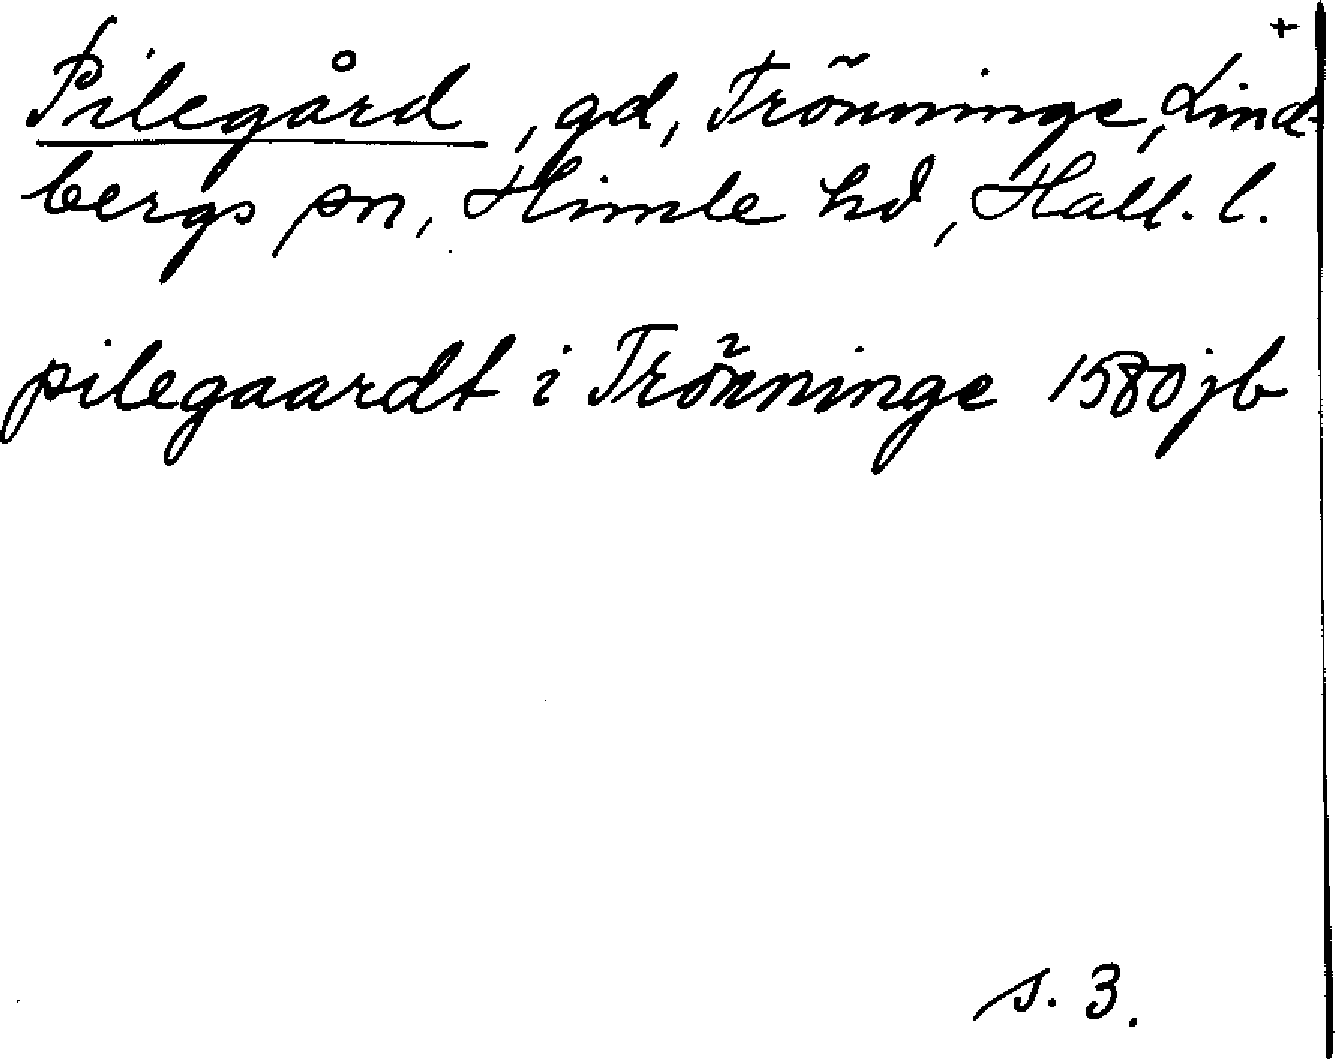 +
Pilegård, gd, Trönninge, Lind-
bergs sn, Himle hd, Hall. l.
pilegaardt i Trönninge 1580 jb
s. 3.